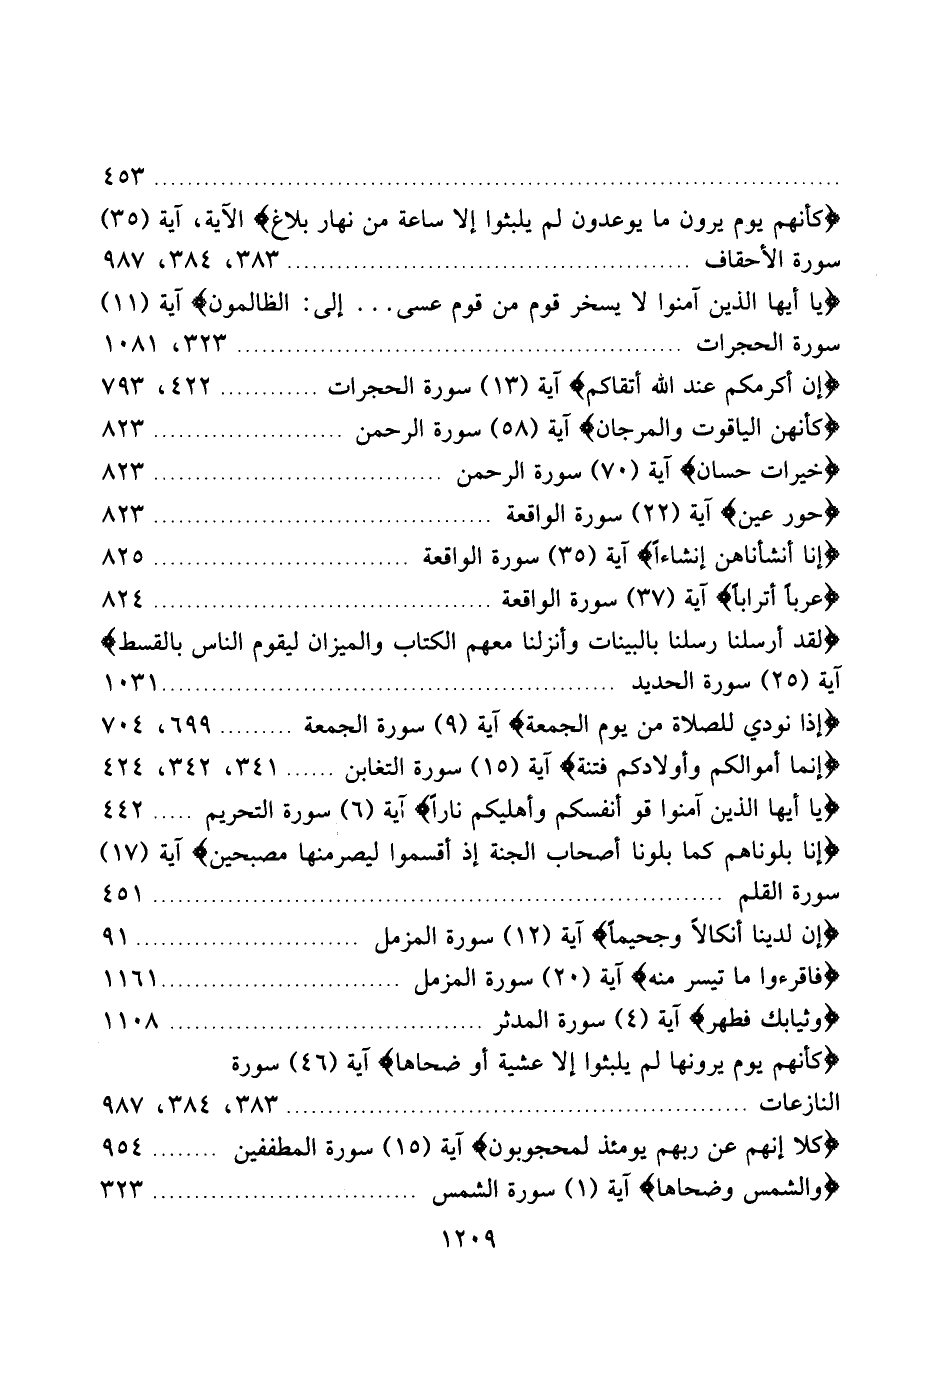 ................................................................ ٤٥٣
﴿كأنهم يوم يرون ما يوعدون لم يلبثوا إلا ساعة من نهار بلاغ﴾ الآية، آية (٣٥)
سورة الأحقاف ................................ ٣٨٣، ٣٨٤، ٩٨٧
﴿يا أيها الذين آمنوا لا يسخر قوم من قوم عسى... إلى: الظالمون﴾ آية (١١)
سورة الحجرات ................................ ٣٢٣، ١٠٨١
﴿إن أكرمكم عند الله أتقاكم﴾ آية (١٣) سورة الحجرات ............ ٤٢٢، ٧٩٣
﴿كأنهن الياقوت والمرجان﴾ آية (٥٨) سورة الرحمن ....................... ٨٢٣
﴿خيرات حسان﴾ آية (٧٠) سورة الرحمن ................................ ٨٢٣
﴿حور عين﴾ آية (٢٢) سورة الواقعة ................................ ٨٢٣
﴿إنا أنشأناهن إنشاءاً﴾ آية (٣٥) سورة الواقعة ............................ ٨٢٥
﴿عرباً أتراباً﴾ آية (٣٧) سورة الواقعة ................................ ٨٢٤
﴿لقد أرسلنا رسلنا بالبينات وأنزلنا معهم الكتاب والميزان ليقوم الناس بالقسط﴾
آية (٢٥) سورة الحديد ................................ ١٠٣١
﴿إذا نودي للصلاة من يوم الجمعة﴾ آية (٩) سورة الجمعة ......... ٦٩٩، ٧٠٤
﴿إنما أموالكم وأولادكم فتنة﴾ آية (١٥) سورة التغابن ...... ٣٤١، ٣٤٢، ٤٢٤
﴿يا أيها الذين آمنوا قو أنفسكم وأهليكم ناراً﴾ آية (٦) سورة التحريم ..... ٤٤٢
﴿إنا بلوناهم كما بلونا أصحاب الجنة إذ أقسموا ليصرمنها مصبحين﴾ آية (١٧)
سورة القلم ................................ ٤٥١
﴿إن لدينا أنكالاً وجحيماً﴾ آية (١٢) سورة المزمل ........................... ٩١
﴿فاقرءوا ما تيسر منه﴾ آية (٢٠) سورة المزمل ............................ ١١٦١
﴿وثيابك فطهر﴾ آية (٤) سورة المدثر ................................ ١١٠٨
﴿كأنهم يوم يرونها لم يلبثوا إلا عشية أو ضحاها﴾ آية (٤٦) سورة
النازعات ................................ ٣٨٣، ٣٨٤، ٩٨٧
﴿كلا إنهم عن ربهم يومئذ لمحجوبون﴾ آية (١٥) سورة المطففين ........ ٩٥٤
﴿والشمس وضحاها﴾ آية (١) سورة الشمس ................................ ٣٢٣
١٢٠٩